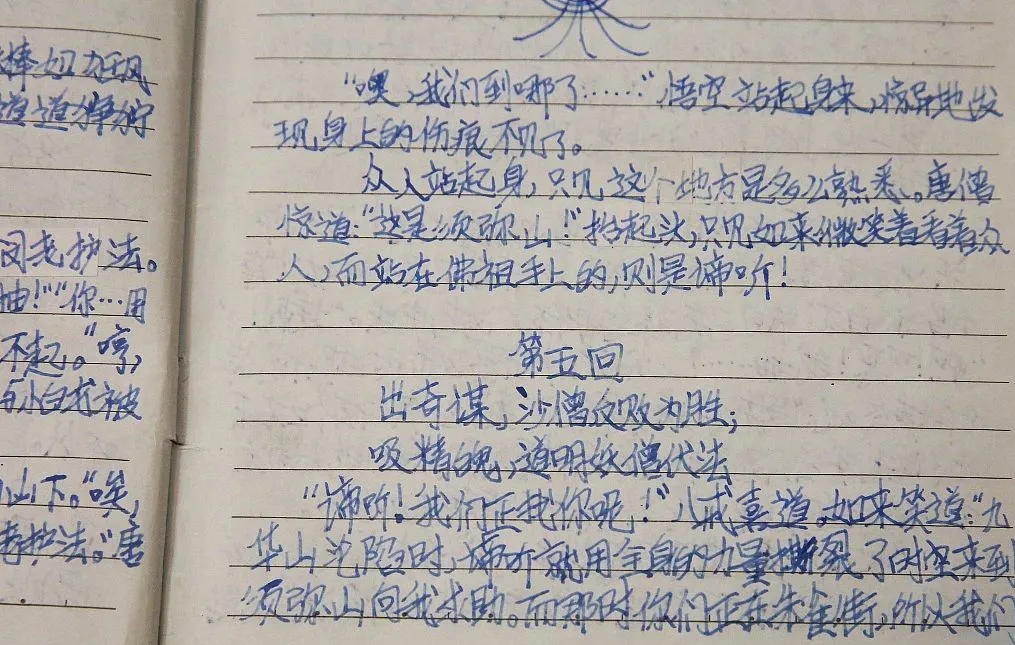 棒如狂风
道道狰狞
闭老护法。
抽!""你…用
不起。"哼,
与小白龙被
山下。"唉,
老护法。"唐
"噢,我们到哪了……"悟空站起身来,惊异地发
现身上的伤痕不见了。
众人站起身,只见这个地方是多么熟悉。唐僧
惊道:"这是须弥山!"抬起头,只见如来微笑着看着众
人,而站在佛祖手上的,则是谛听!
第五回
出奇谋,沙僧反败为胜;
吸精魄,道明妖僧伏法
"谛听!我们正找你呢!"八戒喜道。如来笑道:"九
华山沦陷时,谛听就用全身的力量撕裂了时空来到
须弥山向我求助。而那时你们正在朱雀街,所以我们